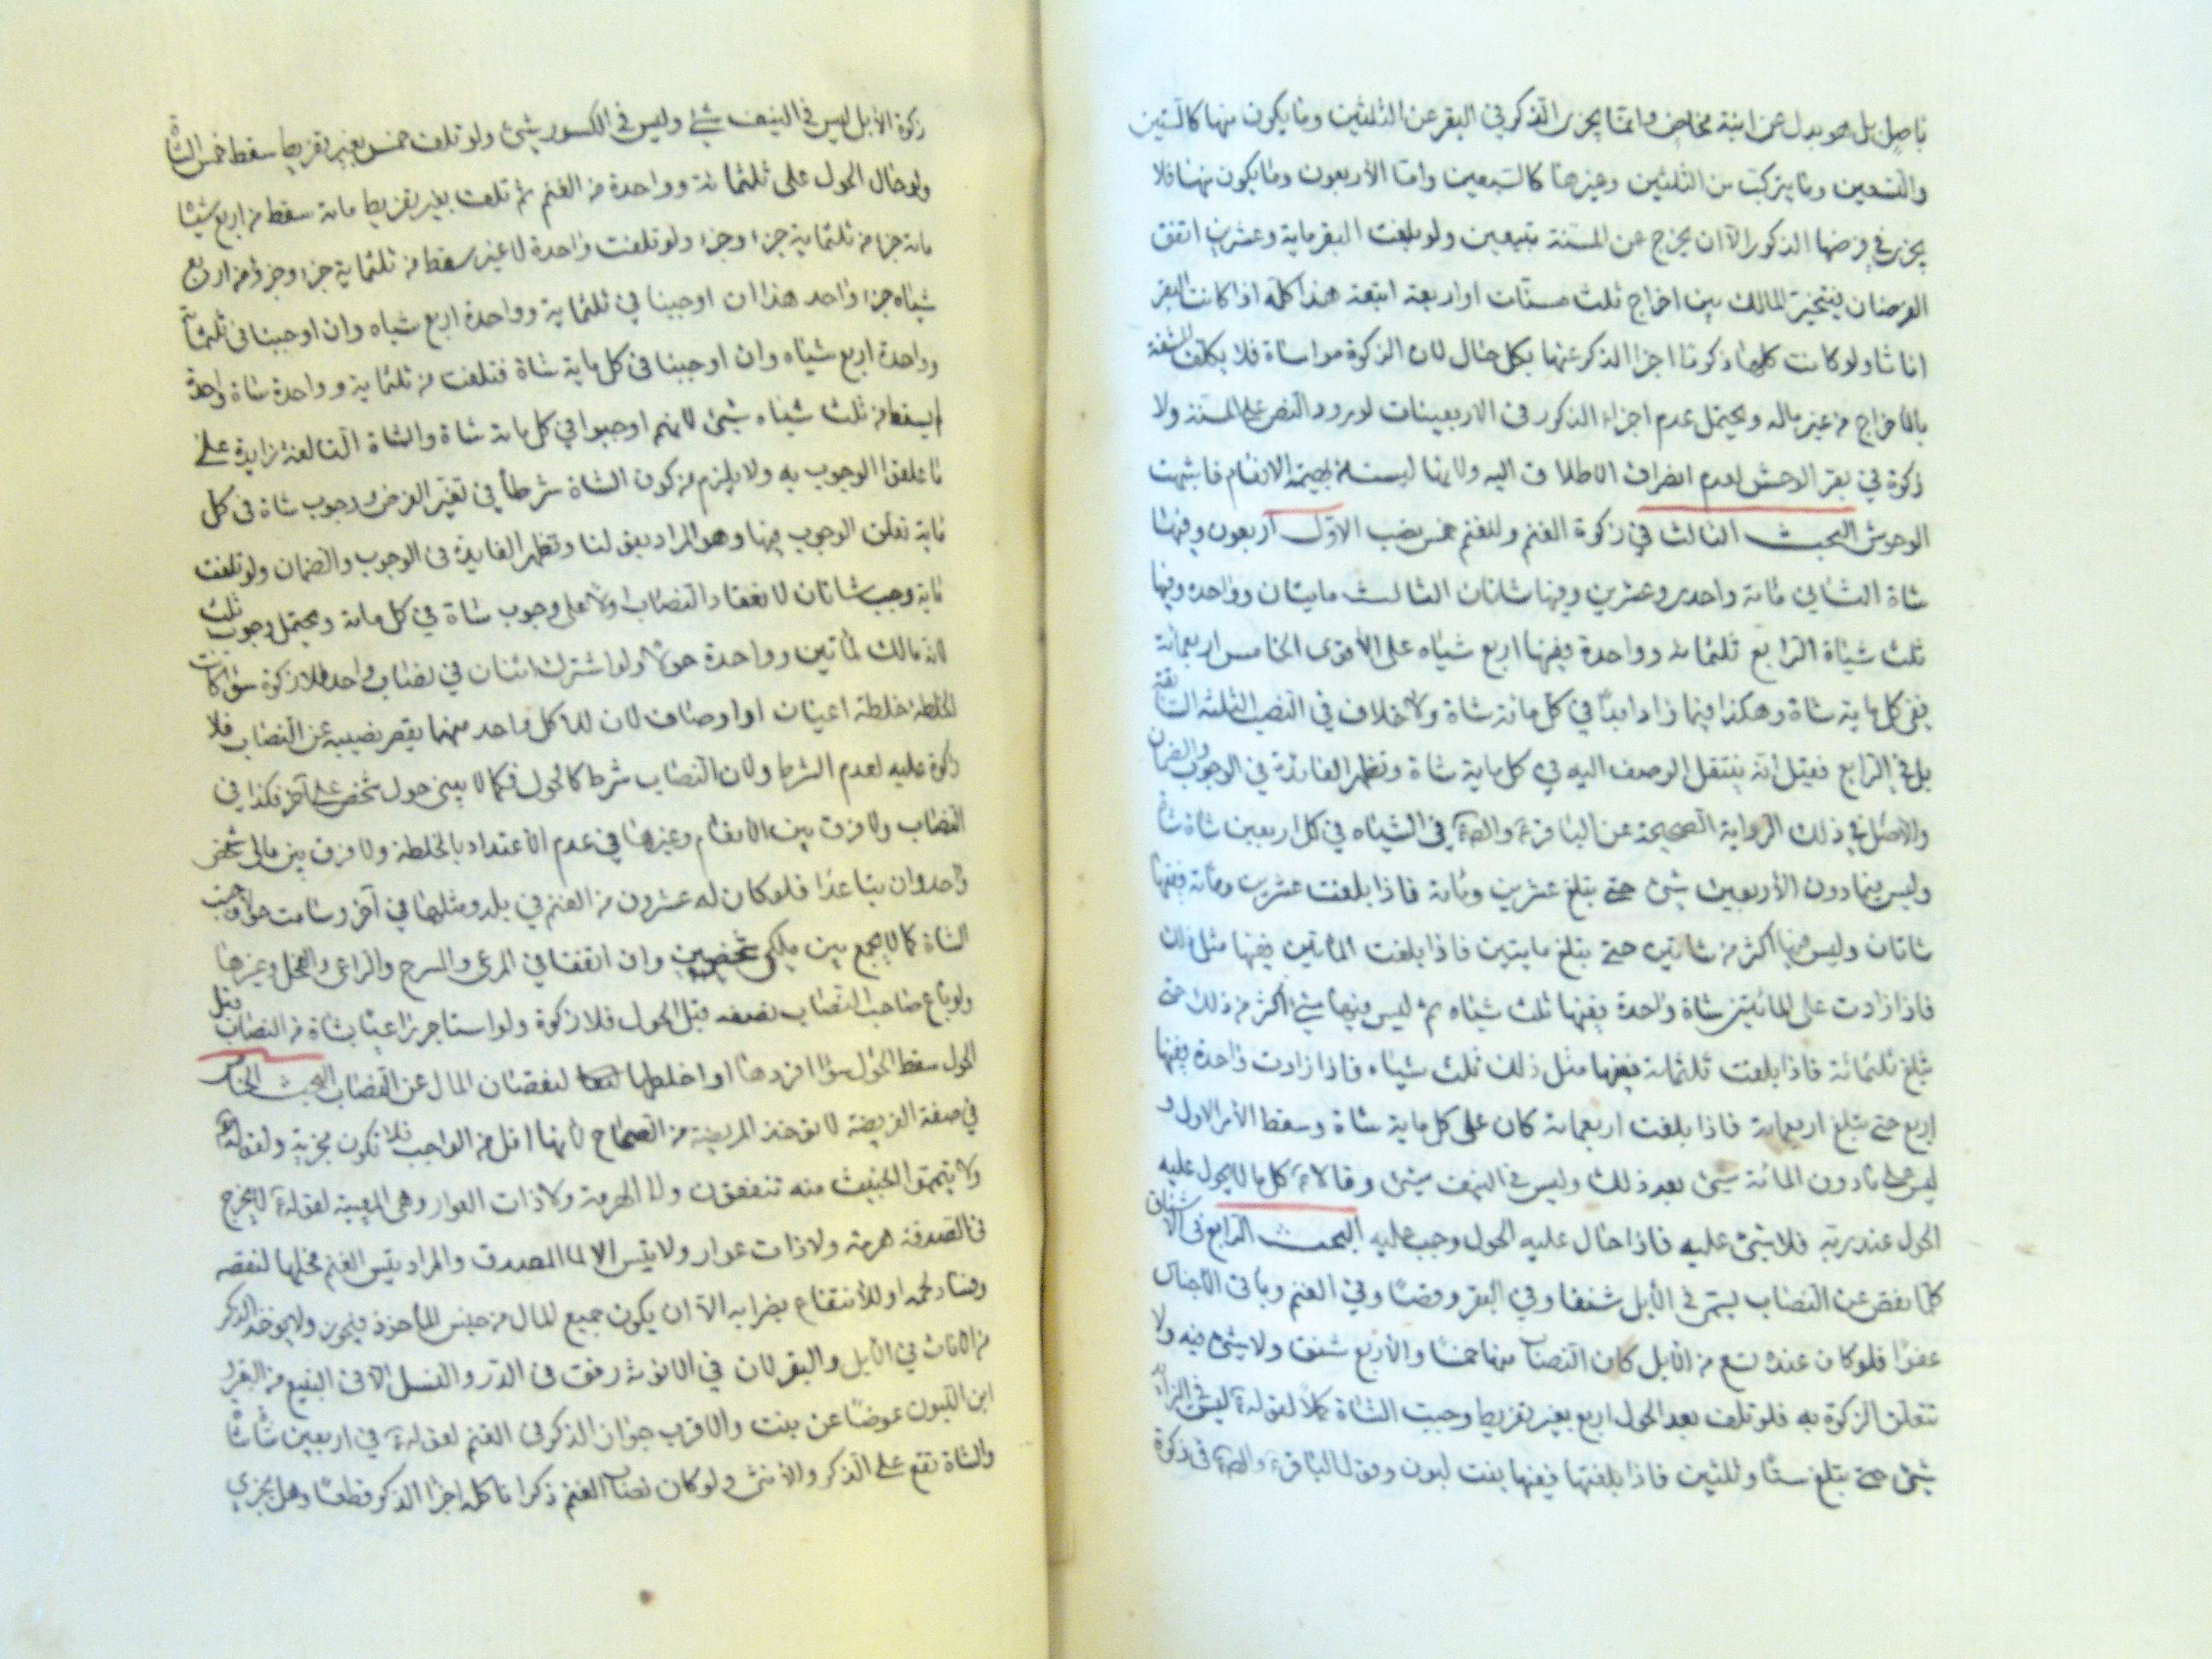 باصل بل هو بدل عن ابنة مخاض وانما يجزى الذكر في البقر عن الثلثين وما يكون منها كالستين
والتسعين وما يتركب من الثلثين وغيرها كالسبعين واما الأربعون وما يكون منها فلا
يجزى في فرضها الذكور الا ان يخرج عن المسنة تبيعين ولو بلغت البقر ماية وعشرين اتفق
الفرضان فيتخير المالك بين اخراج ثلث مسنات او اربعة اتبعة هذا كله اذا كانت البقر
اناثا ولو كانت كلها ذكورا اجزا الذكر عنها بكل حال لان الزكوة مواساة فلا يكلف المشقة
بالاخراج من غير ماله ويحتمل عدم اجزاء الذكور في الاربعينات لورود النص على المسنة ولا
زكوة في بقر الوحش لعدم انصراف الاطلاق اليه ولانها ليست من بهيمة الانعام فاشبهت
الوحوش البحث الثالث في زكوة الغنم وللغنم خمس نصب الاول اربعون وفيها
شاة الثاني مائة واحدى وعشرين وفيها شاتان الثالث مايتان وواحدة وفيها
ثلث شياة الرابع ثلثمائة وواحدة ففيها اربع شياه على الأقوى الخامس اربعمائة
ففي كل ماية شاة وهكذا فيما زاد ابدا في كل مائة شاة ولا خلاف في النصب الثلثة السابقة
بل في الرابع فقيل انه ينتقل الوصف اليه في كل ماية شاة وتظهر الفائدة في الوجوب والضمان
والاصل في ذلك الرواية الصحيحة عن الباقر والص في الشياه في كل اربعين شاة شاة
وليس فيما دون الأربعين شيئ حتى يبلغ عشرين ومائة فاذا بلغت عشرين ومائة ففيها
شاتان وليس فيها اكثر من شاتين حتى يبلغ مايتين فاذا بلغت المأتين ففيها مثل ذلك
فاذا زادت على المائتين شاة واحدة ففيها ثلث شياه ثم ليس فيها شئ اكثر من ذلك حتى
يبلغ ثلثمائة فاذا بلغت ثلثمائة ففيها مثل ذلك ثلث شياه فاذا زادت واحدة ففيها
اربع حتى يبلغ اربعمائة فاذا بلغت اربعمائة كان على كل ماية شاة وسقط الأمر الاول و
ليس على مادون المائة شيئ بعد ذلك وليس في النيف شيئ وقالا كل ما لا يحول عليه
الحول عند ربه فلا شيئ عليه فاذا حال عليه الحول وجب عليه البحث الرابع في الاشناق
كلما نقص عن النصاب يسمى في الأبل شنقا وفي البقر وقصا وفي الغنم وباقى الأجناس
عفوا فلو كان عنده تسع من الأبل كان النصاب منها خمسا والأربع شنق ولا شيئ فيه ولا
تتعلق الزكوة به فلو تلف بعد الحول اربع بغير تفريط وجبت الشاة كملا لقوله ليس في الزايد
شيئ حتى يبلغ ستا وثلثين فاذا بلغتها ففيها بنت لبون وقول الباقر والص في زكوة
زكوة الأبل ليس في النيف شئ وليس في الكسور شيئ ولو تلف خمس بغير تفريط سقط خمس الشاة
ولو حال الحول على ثلثمائة وواحدة من الغنم ثم تلفت بغير تفريط مائة سقط من اربع شياه
مائة جزء من ثلثماية جزء وجزء ولو تلفت واحدة لا غير سقط من ثلثماية جزء وجزء من اربع
شياه جزء واحد هذا ان اوجبنا في ثلثماية وواحدة اربع شياه وان اوجبنا في ثلثمائة
وواحدة اربع شياه وان اوجبنا في كل ماية شاة فتلفت من ثلثماية وواحدة شاة واحدة
لم يسقط من ثلث شياه شيئ لانهم اوجبوا في كل مائة شاة والشاة التالفة زايدة على
ما علقوا الوجوب به ولا يلزم من كون الشاة شرطا في تغير الفرض وجوب شاة في كل
ماية تعلق الوجوب فيها وهو المراد بقولنا وتظهر الفايدة في الوجوب والضمان ولو تلفت
ماية وجب شاتان لانعقاد النصاب ولا على وجوب شاة في كل مائة ويحتمل وجوب ثلث
لانه مالك لمأتين وواحدة حولا ولو اشترك اثنان في نصاب واحد فلا زكوة سواء كانت
الخلطة خلطة اعيان او اوصاف لان كل واحد منهما يقصر نصيبه عن النصاب فلا
زكوة عليه لعدم الشرط ولان النصاب شرط كالحول فكما لا يبنى حول شخص على آخر فكذا في
النصاب ولا فرق بين الانعام وغيرها في عدم الأعتداد بالخلطة ولا فرق بين مالى شخص
واحد وان تباعدا فلو كان له عشرون من الغنم في بلد ومثلها في آخر وسامت حولا وجبت
الشاة كما لا يجمع بين ملكى شخصين وان اتفقا في المرعى والسرح والراعى والفحل وغيرها
ولو باع صاحب النصاب نصفه قبل الحول فلا زكوة ولو استاجر راعيا بشاة من النصاب قبل
الحول سقط الحول سواء افردها او اخلطها لنقصان المال عن النصاب البحث الخامس
في صفة الفريضة لا يؤخذ المريضة من الصحاح لانها اقل من الواجب فلا تكون مجزية ولقوله
ولا تيمموا الخبيث منه تنفقون ولا الهرمة ولا ذات العوار وهى المعيبة لقوله لا يخرج
في الصدقة هرمة ولا ذات عوار ولا تيس الا ان المصدق والمراد بتيس الغنم فحلها لنقصه
وفساد لحمه او للأنتفاع بضرابه الا ان يكون جميع المال من جنس المأخوذ فيجوز ولا يؤخذ الذكر
من الاناث في الأبل والبقر لان في الانوثة رفق في الدر والنسل الا في التبيع من البقر و
ابن اللبون عوضا عن بنت والاقرب جواز الذكر في الغنم لقوله في اربعين شاة شاة
والشاة تقع على الذكر والأنثى ولو كان نصاب الغنم ذكرانا كله اجزا الذكر قطعا وهل يجزي